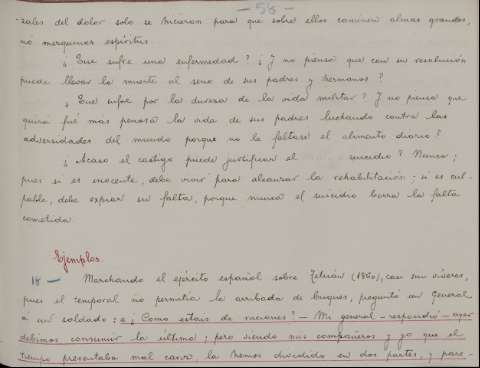 - 56 -
zales del dolor solo se hicieron para que sobre ellos caminen almas grandes,
nó mezquinos espíritus.
¿ Que sufre una enfermedad ? ¿ Y no piensa que con su resolución
puede llevar la muerte al seno de sus padres y hermanos ?
¿ Que sufre por la dureza de la vida militar ? Y no piensa que
quizá fué mas penosa la vida de sus padres luchando contra las
adversidades del mundo porque no le faltase el alimento diario ?
¿ Acaso el castigo puede justificar el suicidio ? Nunca ;
pues si es inocente, debe vivir para alcanzar la rehabilitación ; si es cul-
pable, debe expiar su falta, porque nunca el suicidio borra la falta
cometida.
Ejemplos
1º — Marchando el ejército español sobre Tetuán (1860), casi sin víveres,
pues el temporal no permitía la arribada de buques, preguntó un General
a un soldado : ¿ Como estais de raciones ? — Mi general - respondió - ayer
debimos consumir la última ; pero viendo mis compañeros y yo que el
tiempo presentaba mal cariz, la hemos dividido en dos partes, y pare-